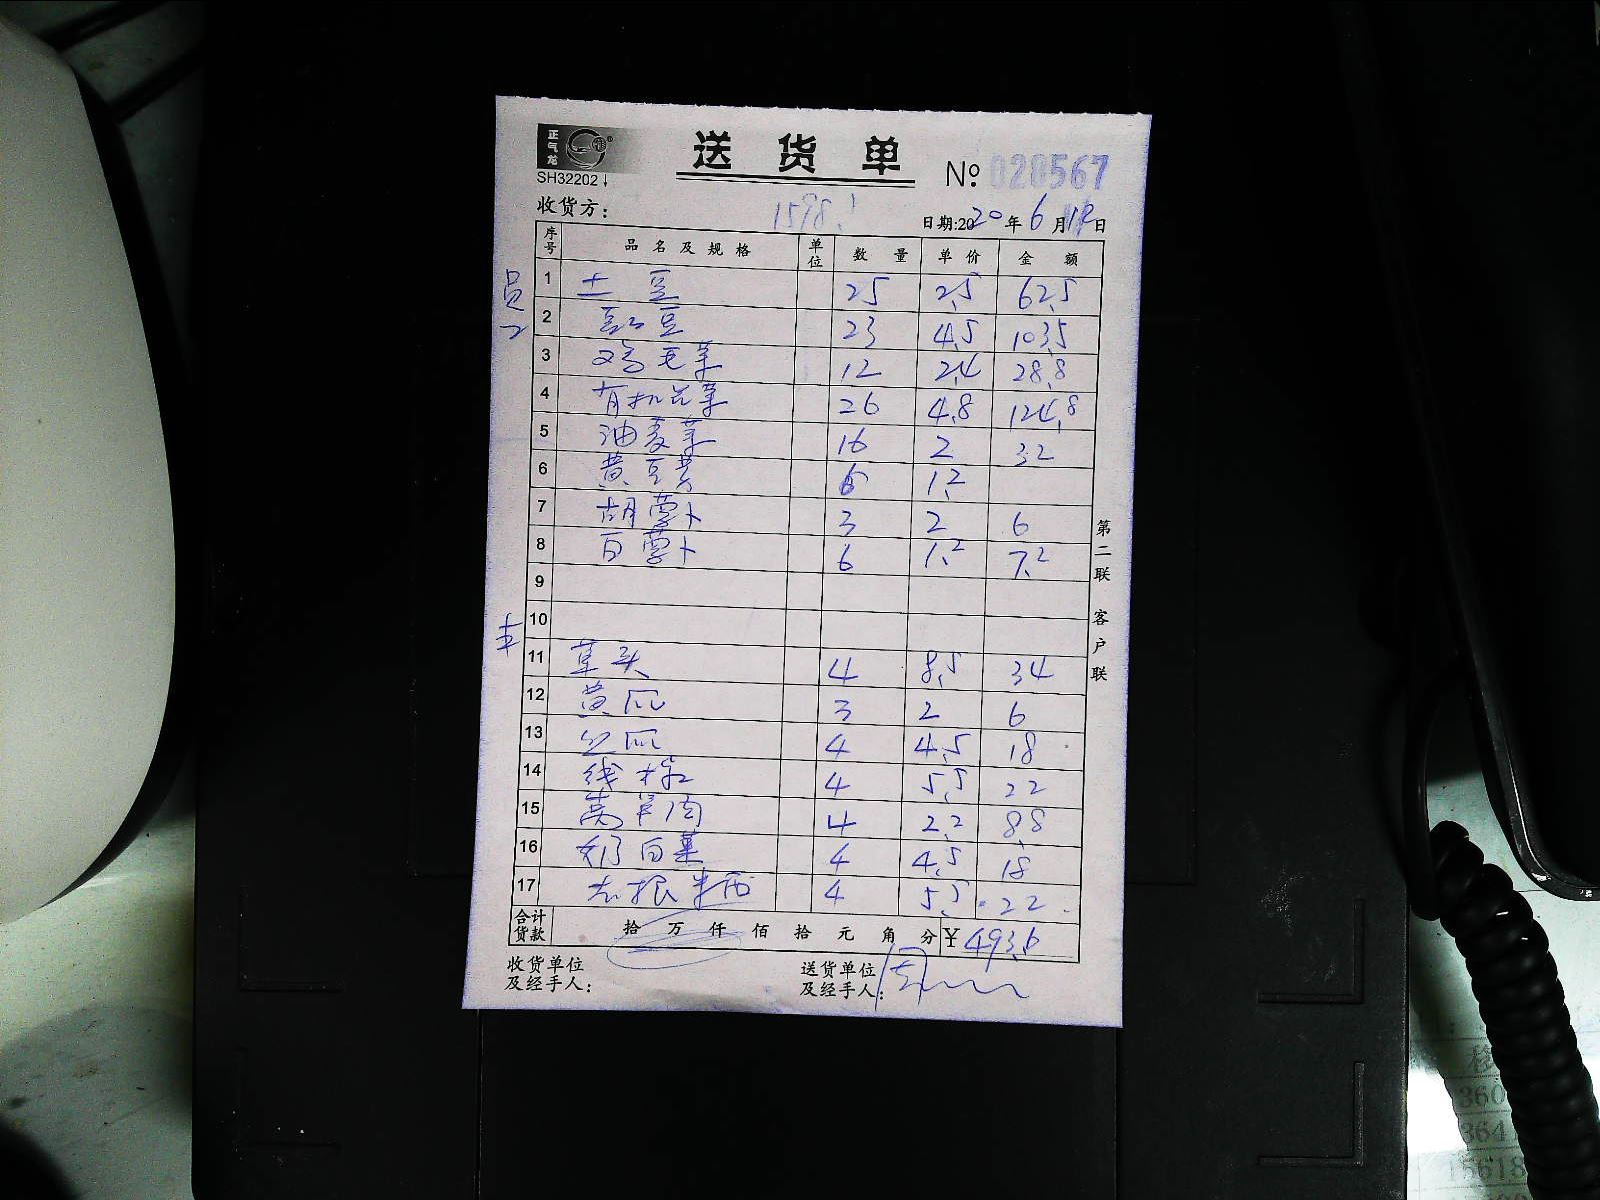 正气龙
SH32202
送货单
№ 020567
1598.1
收货方： 日期:2020年6月12日
序号 品名及规格 单位 数量 单价 金额
员2
1 土豆 25 2.5 62.5
2 豇豆 23 4.5 103.5
3 鸡毛菜 12 2.4 28.8
4 有机花菜 26 4.8 124.8
5 油麦菜 16 2 32
6 黄豆芽 6 1.2
7 胡萝卜 3 2 6
8 白萝卜 6 1.2 7.2
9
10
11 草头 4 8.5 34
12 黄瓜 3 2 6
13 丝瓜 4 4.5 18
14 线椒 4 5.5 22
15 莴笋肉 4 2.2 8.8
16 奶白菜 4 4.5 18
17 去根米西 4 5.5 22
合计货款 拾 万 仟 佰 拾 元 角 分 ¥ 493.6
收货单位及经手人： 送货单位及经手人：
第二联 客户联
360
364
15618